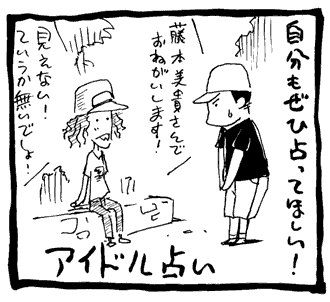 自分もぜひ占ってほしい！
藤本美貴さんで
おねがいします！
見えない！
ていうか無いでしょ！
アイドル占い